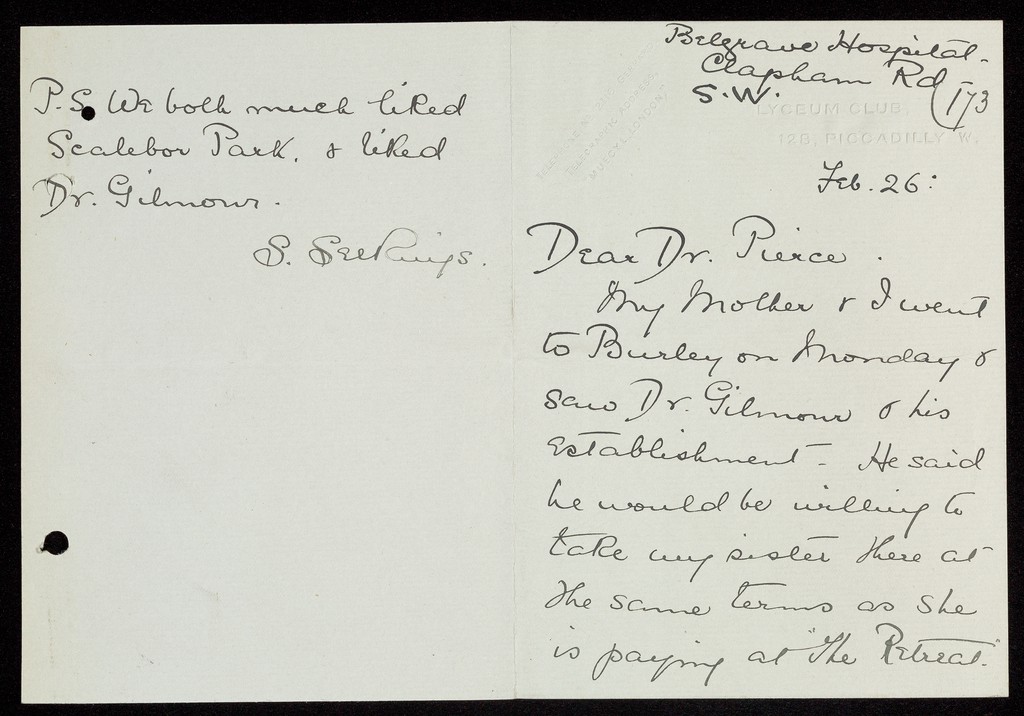 P.S. We both much liked
Scalebor Park. & liked
Dr. Gilmour.
S. Seekings.
Belgrave Hospital.
Clapham Rd
S.W.
173
LYCEUM CLUB,
128, PICCADILLY W.
Feb. 26:
Dear Dr. Pierce.
My Mother & I went
to Burley on Monday &
saw Dr. Gilmour & his
establishment - He said
he would be willing to
take my sister there at
the same terms as she
is paying at "The Retreat."